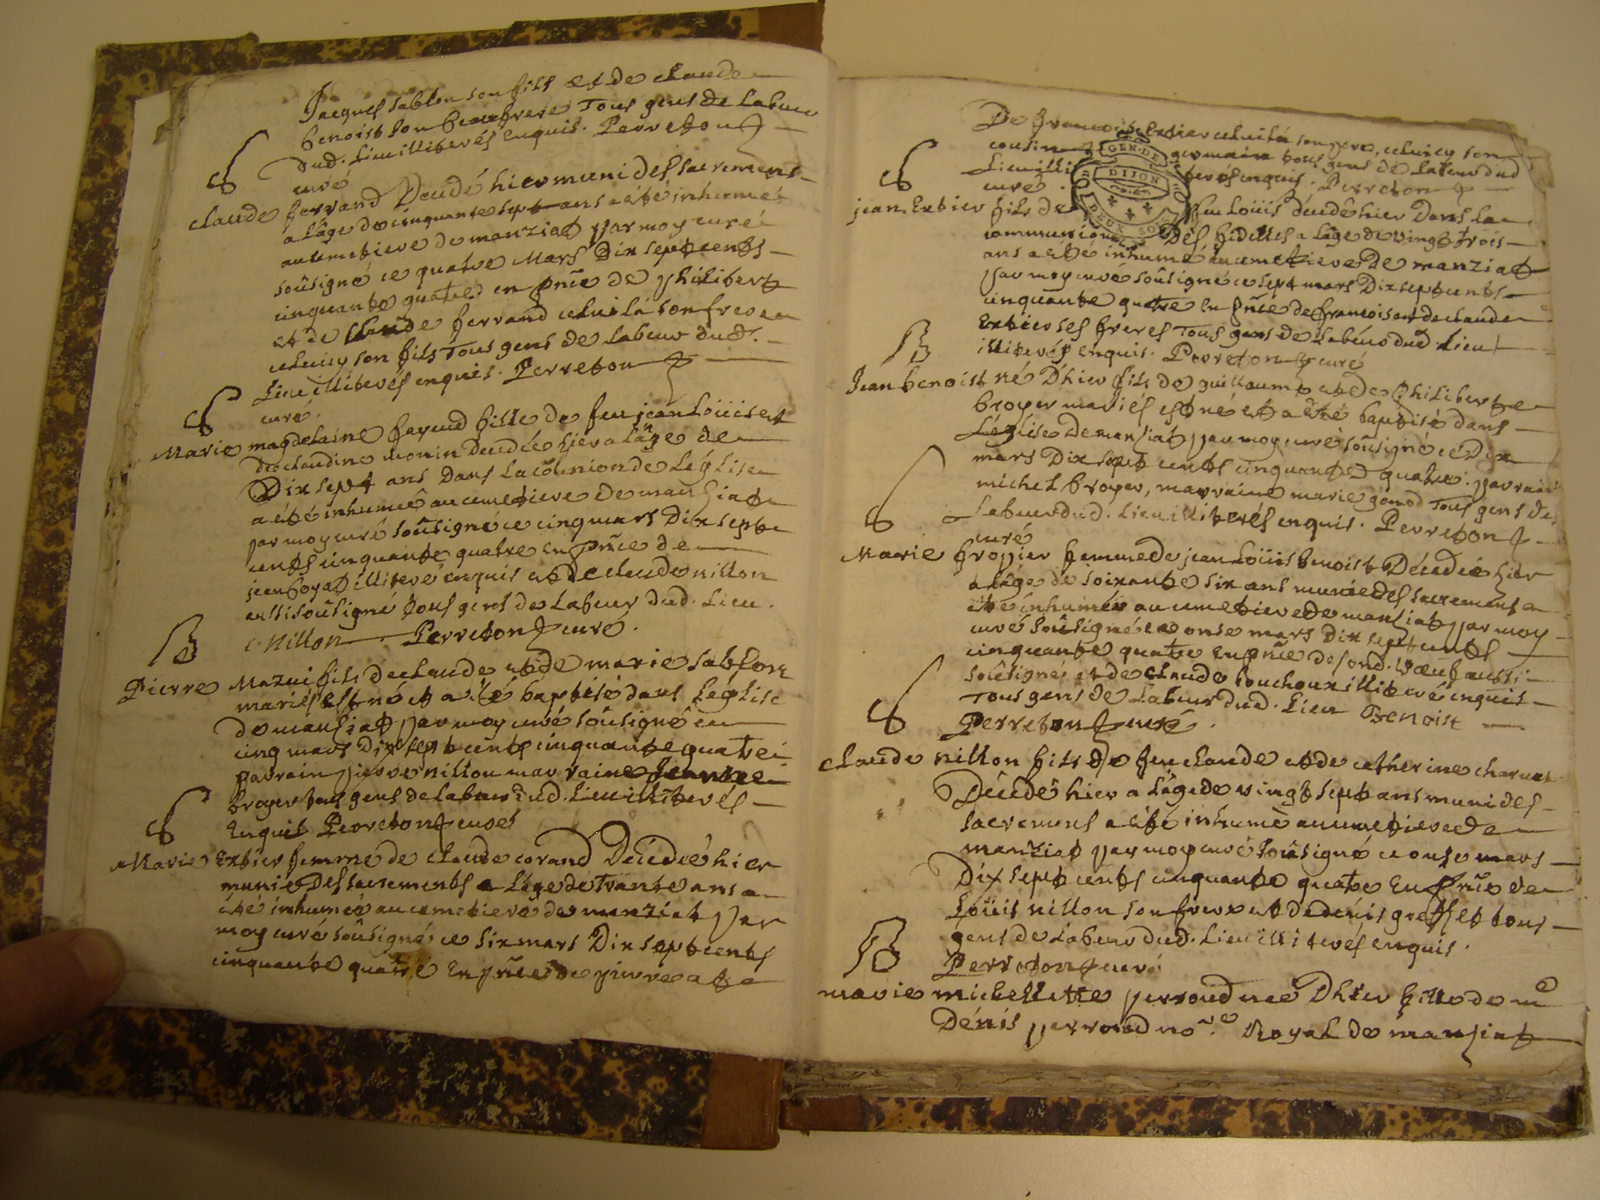 Jacques sablon son fils et de claude
benoist son beaufrere Tous gens de labeur
dud. Lieu illiterés enquis. Perreton
curé
S
claude ferrand Décédé hier muni des sacremens
a l'âge de cinquante sept ans a été inhumé
au cimetiere de manziat par moy curé
soûsigné ce quatre Mars Dix sept cents
cinquante quatre en pñce de philibert
et de claude ferrand celui là son frere
celuicy son fils Tous gens de labeur dud.
Lieu illiterés enquis. Perreton
curé.
S
Marie magdelaine feyud fille de feu jean Loüis et
de claudine monin Decedée hier a l'age de
Dix sept ans Dans la cõmunion de L'église
a été inhumée au cimetiere de manziat
par moy curé soûsigné ce cinq mars Dix sept
cents cinquante quatre en pñce de
jean boyat illiteré enquis et de claude nillon
aussi soûsigné Tous gens de Labeur dud. Lieu.
C Nillon Perreton curé.
B
Pierre Mazui fils de claude et de marie sablon
mariés est né et a été baptisé dans L'eglise
de manziat par moy curé soûsigné ce
cinq mars Dix sept cents cinquante quatre
parrain pierre nillon marraine Jeanne
broyer tous gens de labeur dud. Lieu illiterés
Enquis Perreton curé
S
Marie Extier femme de claude corand Décédée hier
munie Des sacrements a L'âge de trante ans a
été inhumée au cimetiere de manziat par
moy curé soûsigné ce six mars Dix sept cents
cinquante quatre En pñce de pierre et
De francois Extier celui là son pere, celuicy son
cousin germain tous gens de Labeur dud
Lieu illiterés enquis. Perreton
curé
GEN. DE
DIJON
DEUX SOLS
S
jean Extier fils de feu Loüis décédé hier Dans la
communion Des fidelles a L'âge de vingt trois
ans a été inhumé au cimetiere De manziat
par moy curé soûsigné ce sept mars Dix sept cents
cinquante quatre En pñce de francois et de claude
Extier ses freres Tous gens de Labeur dud. Lieu
illiterés enquis. Perreton curé
B
Jean benoist né D'hier fils de guillaume et de Philiberte
broyer mariés est né et a été baptisé dans
L'église De manziat par moy curé soûsigné ce Dix
mars Dix sept cents cinquante quatre: parrain
michel broyer, marraine marie genod Tous gens de
Labeur dud. Lieu illiterés enquis. Perreton
curé
S
Marie broyer femme de jean Loüis benoist Décédée hier
a L'âge de soixante six ans munie des sacrements a
été inhumée au cimetiere de manziat par moy
curé soûsigné ce onze mars Dix sept cents
cinquante quatre En pñce de aussi
soûsigné et de claude bouchoux illiteré enquis
Tous gens de Labeur dud. Lieu Benoist
Perreton curé.
S
claude nillon fils de feu claude et de catherine charvet
Décédé hier a L'âge de vingt sept ans muni des
sacremens a été inhumé au cimetiere de
manziat par moy curé soûsigné ce onze mars
Dix sept cents cinquante quatre En pñce de
Loüis nillon son frere et de denis greffet tous
gens de Labeur dud. Lieu illiterés enquis.
Perreton curé
B
marie michelette perroud née D'hier fille de me
Dénis perroud nore Royal de manziat